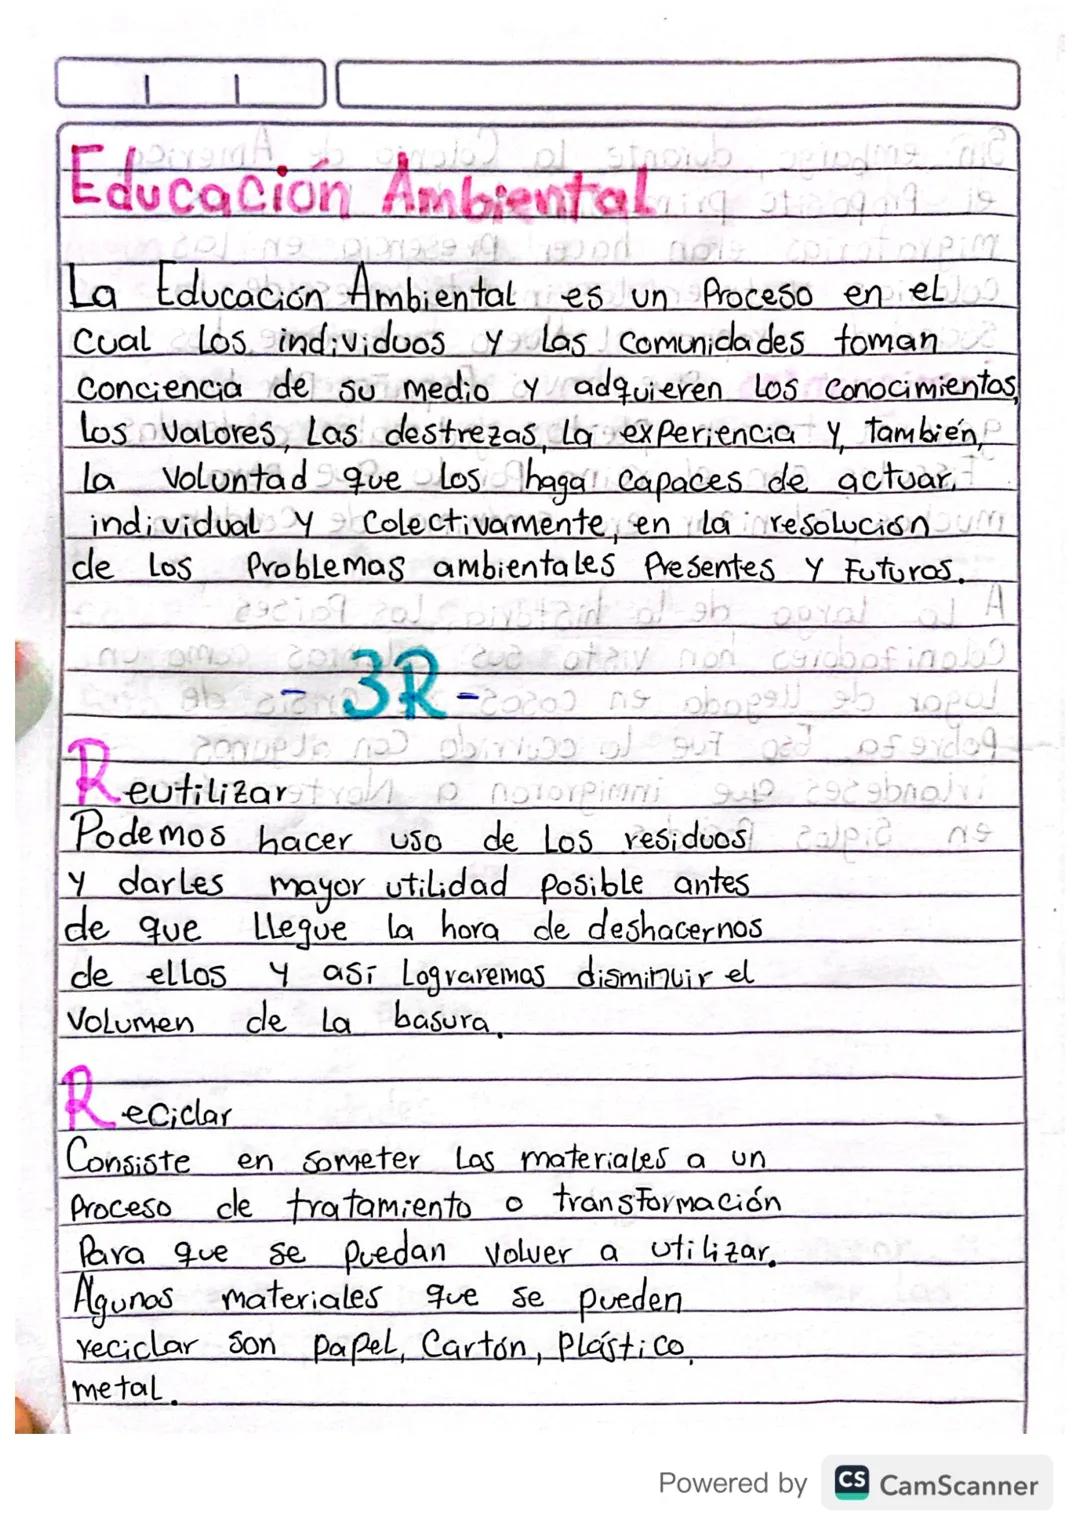 Educación Ambiental
La Educación Ambiental es un Proceso en el
Cual Los individuos y Las Comunidades toman
Conciencia de su medio y adquieren Los Conocimientos,
Los Valores, Las destrezas, La experiencia y, también,
La Voluntad que Los haga Capaces de actuar,
individual y Colectivamente, en La resolución
de Los Problemas ambientales Presentes y Futuros.
- 3R -
Reutilizar
Podemos hacer uso de Los residuos
y darles mayor utilidad posible antes
de que Llegue La hora de deshacernos
de ellos y así Lograremos disminuir el
Volumen de La basura.
Reciclar
Consiste en someter Los materiales a un
Proceso de tratamiento o transformación
Para que se puedan Volver a utilizar.
Algunos materiales que se pueden
reciclar son papel, Cartón, Plástico,
metal.
Powered by CS CamScanner